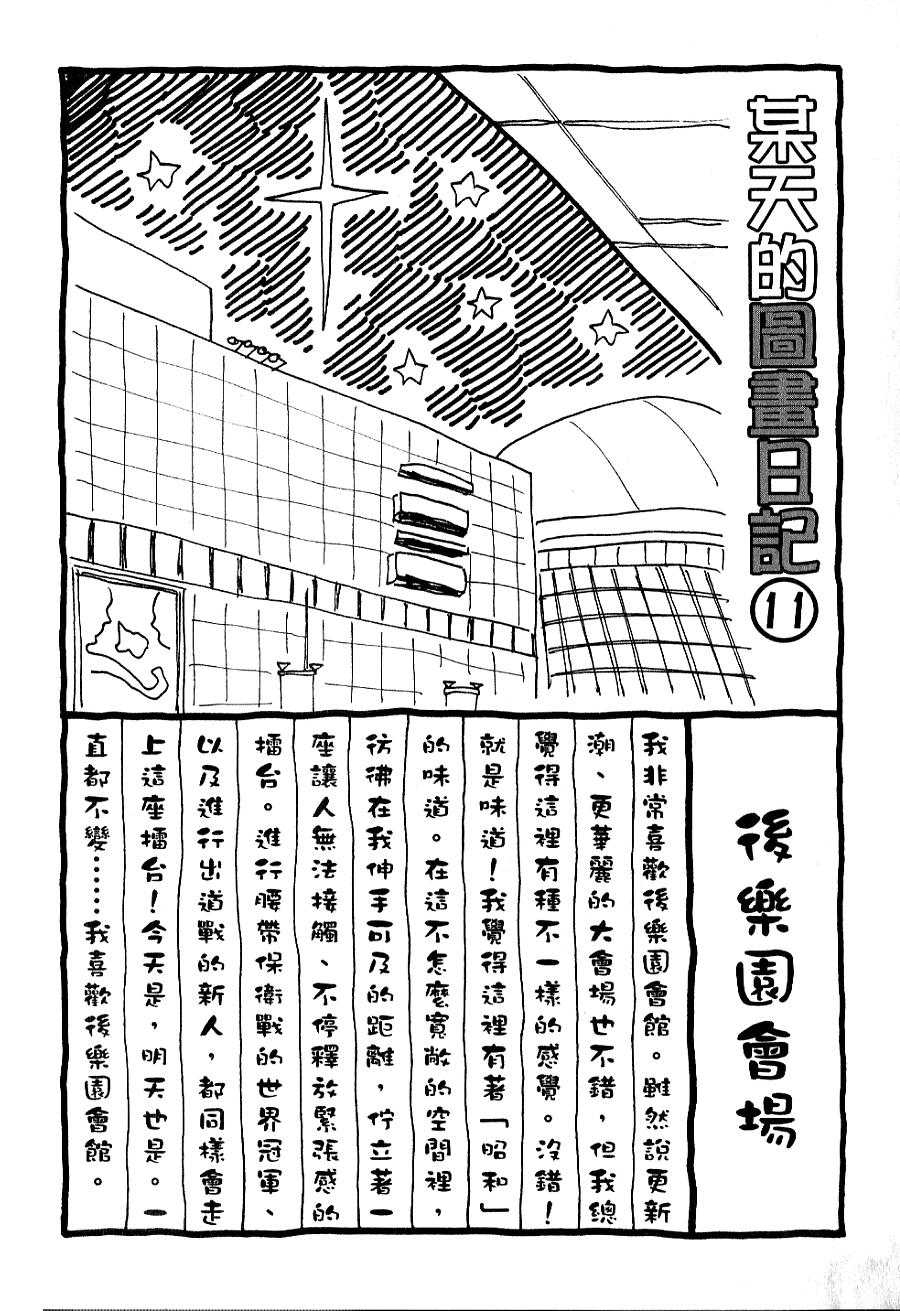 某天的圖畫日記⑪
後樂園會場
我非常喜歡後樂園會館。雖然說更新
潮、更華麗的大會場也不錯，但我總
覺得這裡有種不一樣的感覺。沒錯！
就是味道！我覺得這裡有著「昭和」
的味道。在這不怎麼寬敞的空間裡，
彷彿在我伸手可及的距離，佇立著一
座讓人無法接觸、不停釋放緊張感的
擂台。進行腰帶保衛戰的世界冠軍、
以及進行出道戰的新人，都同樣會走
上這座擂台！今天是，明天也是。一
直都不變……我喜歡後樂園會館。